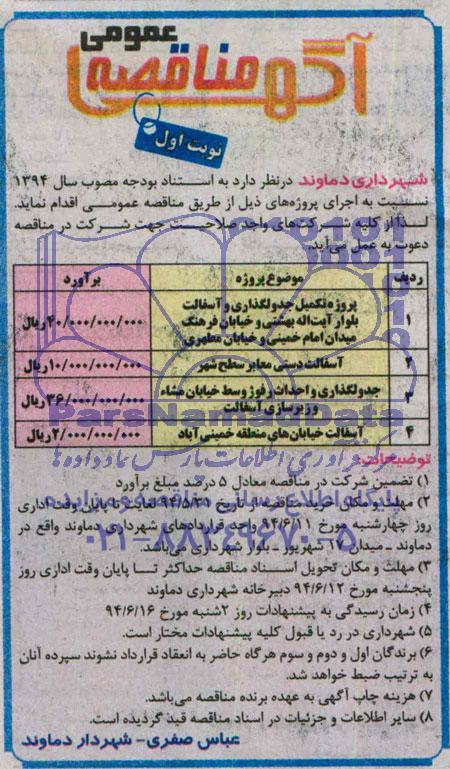 آگهی مناقصه عمومی
نوبت اول
شهرداری دماوند درنظر دارد به استناد بودجه مصوب سال ۱۳۹۴
نسبت به اجرای پروژه‌های ذیل از طریق مناقصه عمومی اقدام نماید.
لذا از کلیه شرکت‌های واجد صلاحیت جهت شرکت در مناقصه
دعوت به عمل می‌آید.
ردیف موضوع پروژه برآورد
۱ پروژه تکمیل جدولگذاری و آسفالت
بلوار آیت‌اله بهشتی و خیابان فرهنگ
میدان امام خمینی و خیابان مطهری
۴۰/۰۰۰/۰۰۰/۰۰۰ریال
۲ آسفالت دستی معابر سطح شهر ۱۰/۰۰۰/۰۰۰/۰۰۰ریال
۳ جدولگذاری و احداث رفوژ وسط خیابان مشاء
و زیرسازی آسفالت
۳۶/۰۰۰/۰۰۰/۰۰۰ریال
۴ آسفالت خیابان های منطقه خمینی آباد ۲/۰۰۰/۰۰۰/۰۰۰ریال
ParsNamadData
توضیحات:
۱) تضمین شرکت در مناقصه معادل ۵ درصد مبلغ برآورد
۲) مهلت و مکان خرید مناقصه از تاریخ ۹۴/۵/۳۱ لغایت تا پایان وقت اداری
روز چهارشنبه مورخ ۹۴/۶/۱۱ واحد قراردادهای شهرداری دماوند واقع در
دماوند ـ میدان ۱۷ شهریور ـ بلوار شهرداری می‌باشد.
۰۲۱-۸۸۳۴۹۶۷۰-۵
۳) مهلت و مکان تحویل اسناد مناقصه حداکثر تا پایان وقت اداری روز
پنجشنبه مورخ ۹۴/۶/۱۲ دبیرخانه شهرداری دماوند
۴) زمان رسیدگی به پیشنهادات روز ۲شنبه مورخ ۹۴/۶/۱۶
۵) شهرداری در رد یا قبول کلیه پیشنهادات مختار است.
۶) برندگان اول و دوم و سوم هرگاه حاضر به انعقاد قرارداد نشوند سپرده آنان
به ترتیب ضبط خواهد شد.
۷) هزینه چاپ آگهی به عهده برنده مناقصه می‌باشد.
۸) سایر اطلاعات و جزئیات در اسناد مناقصه قید گردیده است.
عباس صفری- شهردار دماوند